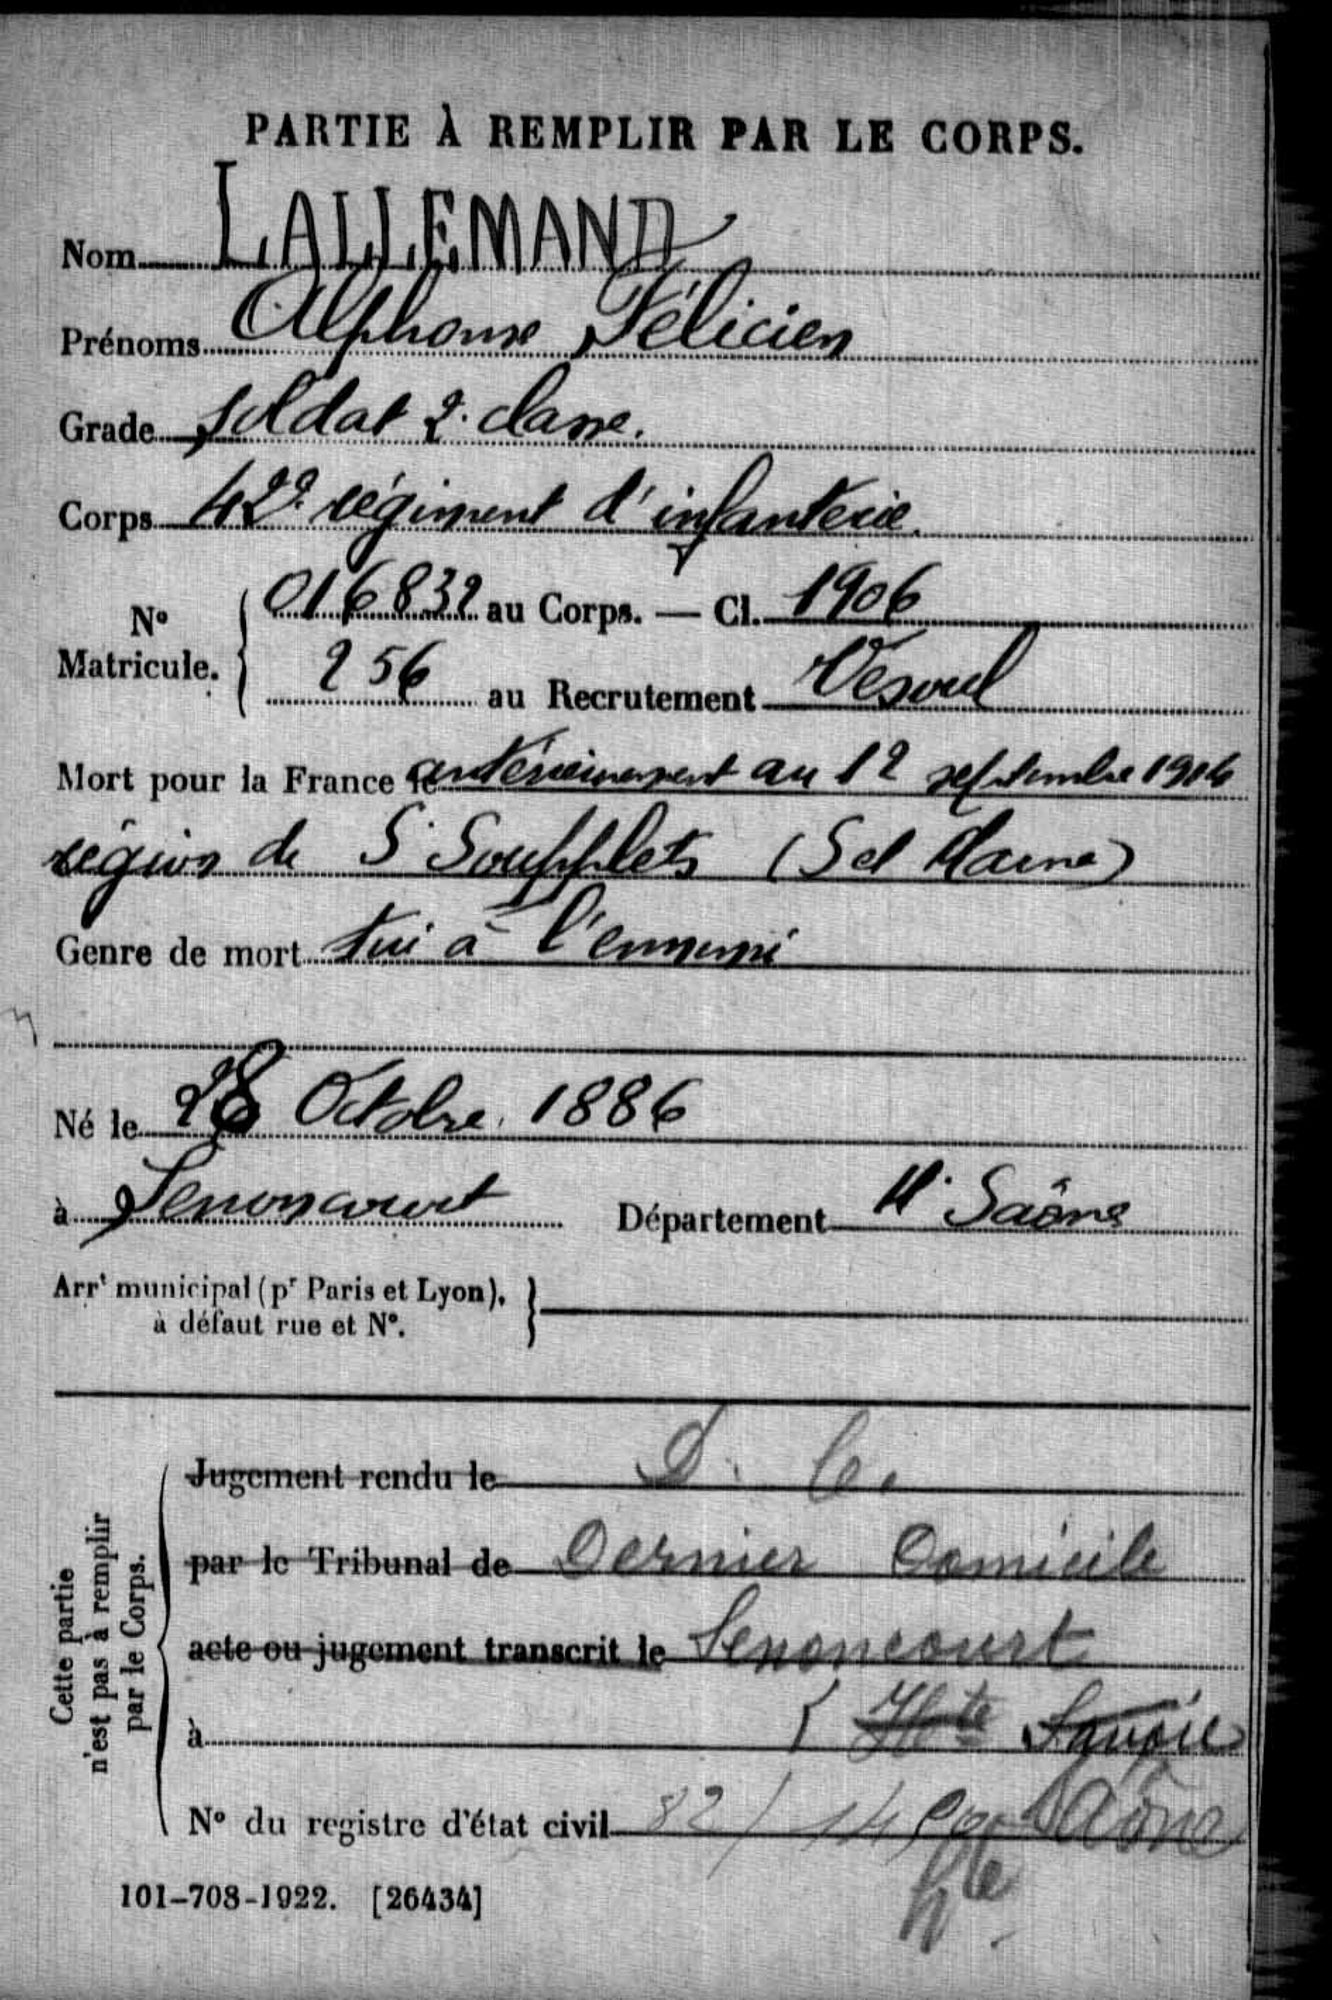 PARTIE À REMPLIR PAR LE CORPS.
Nom LALLEMAND
Prénoms Alphonse Félicien
Grade soldat 2e classe.
Corps 42e régiment d'infanterie.
No Matricule. { 016832 au Corps. — Cl. 1906
256 au Recrutement Vesoul
Mort pour la France le antérieurement au 12 septembre 1914
région de St Soupplets (S et Marne)
Genre de mort tué à l'ennemi
Né le 28 Octobre 1886
à Senoncourt Département Hte Saône
Arrt municipal (pr Paris et Lyon), à défaut rue et No. }
Cette partie n'est pas à remplir par le Corps.
Jugement rendu le D. C.
par le Tribunal de Dernier Domicile
acte ou jugement transcrit le Senoncourt
à Hte Savoie
No du registre d'état civil 82/14 Saône
Hte
101-708-1922. [26434]